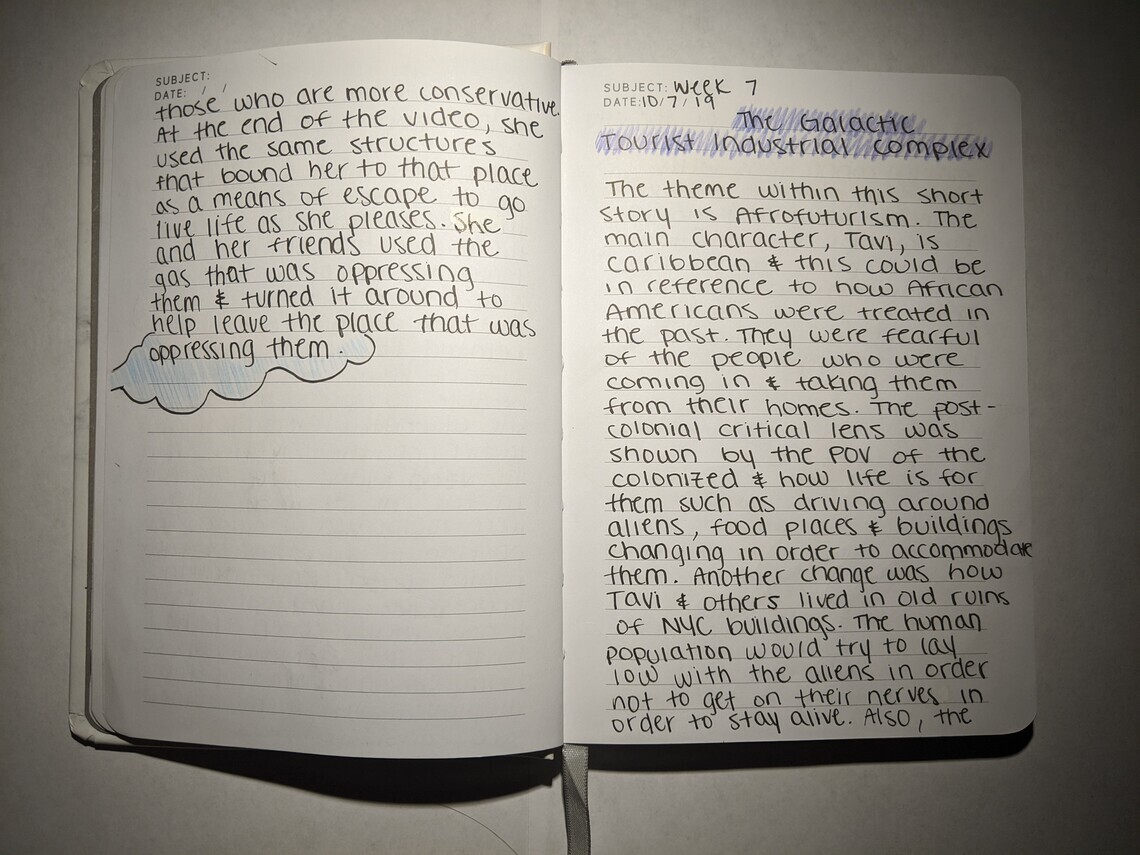 SUBJECT:
DATE: / /
those who are more conservative.
At the end of the video, she
used the same structures
that bound her to that place
as a means of escape to go
live life as she pleases. She
and her friends used the
gas that was oppressing
them & turned it around to
help leave the place that was
oppressing them.
SUBJECT: Week 7
DATE: 10/7/19
The Galactic
Tourist Industrial Complex
The theme within this short
story is Afrofuturism. The
main character, Tavi, is
caribbean & this could be
in reference to how African
Americans were treated in
the past. They were fearful
of the people who were
coming in & taking them
from their homes. The post-
colonial critical lens was
shown by the POV of the
colonized & how life is for
them such as driving around
aliens, food places & buildings
changing in order to accommodate
them. Another change was how
Tavi & others lived in old ruins
of NYC buildings. The human
population would try to lay
low with the aliens in order
not to get on their nerves in
order to stay alive. Also, the